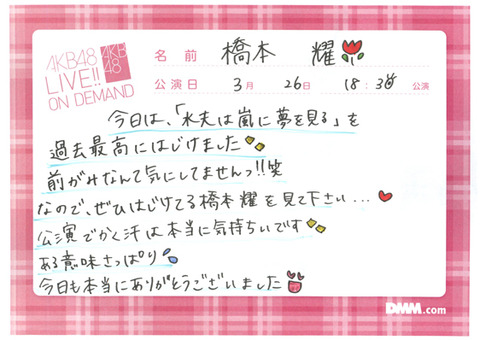 AKB48
LIVE!!
ON DEMAND
AKB
48
名前 橋本 耀
公演日 3月 26日 18:30 公演
今日は、「水夫は嵐に夢を見る」を
過去最高にはじけました
前がみなんて気にしてませんっ!!笑
なので、ぜひはじけてる橋本耀を見て下さい...
公演でかく汗は本当に気持ちいいです
ある意味さっぱり
今日も本当にありがとうございました
DMM.com